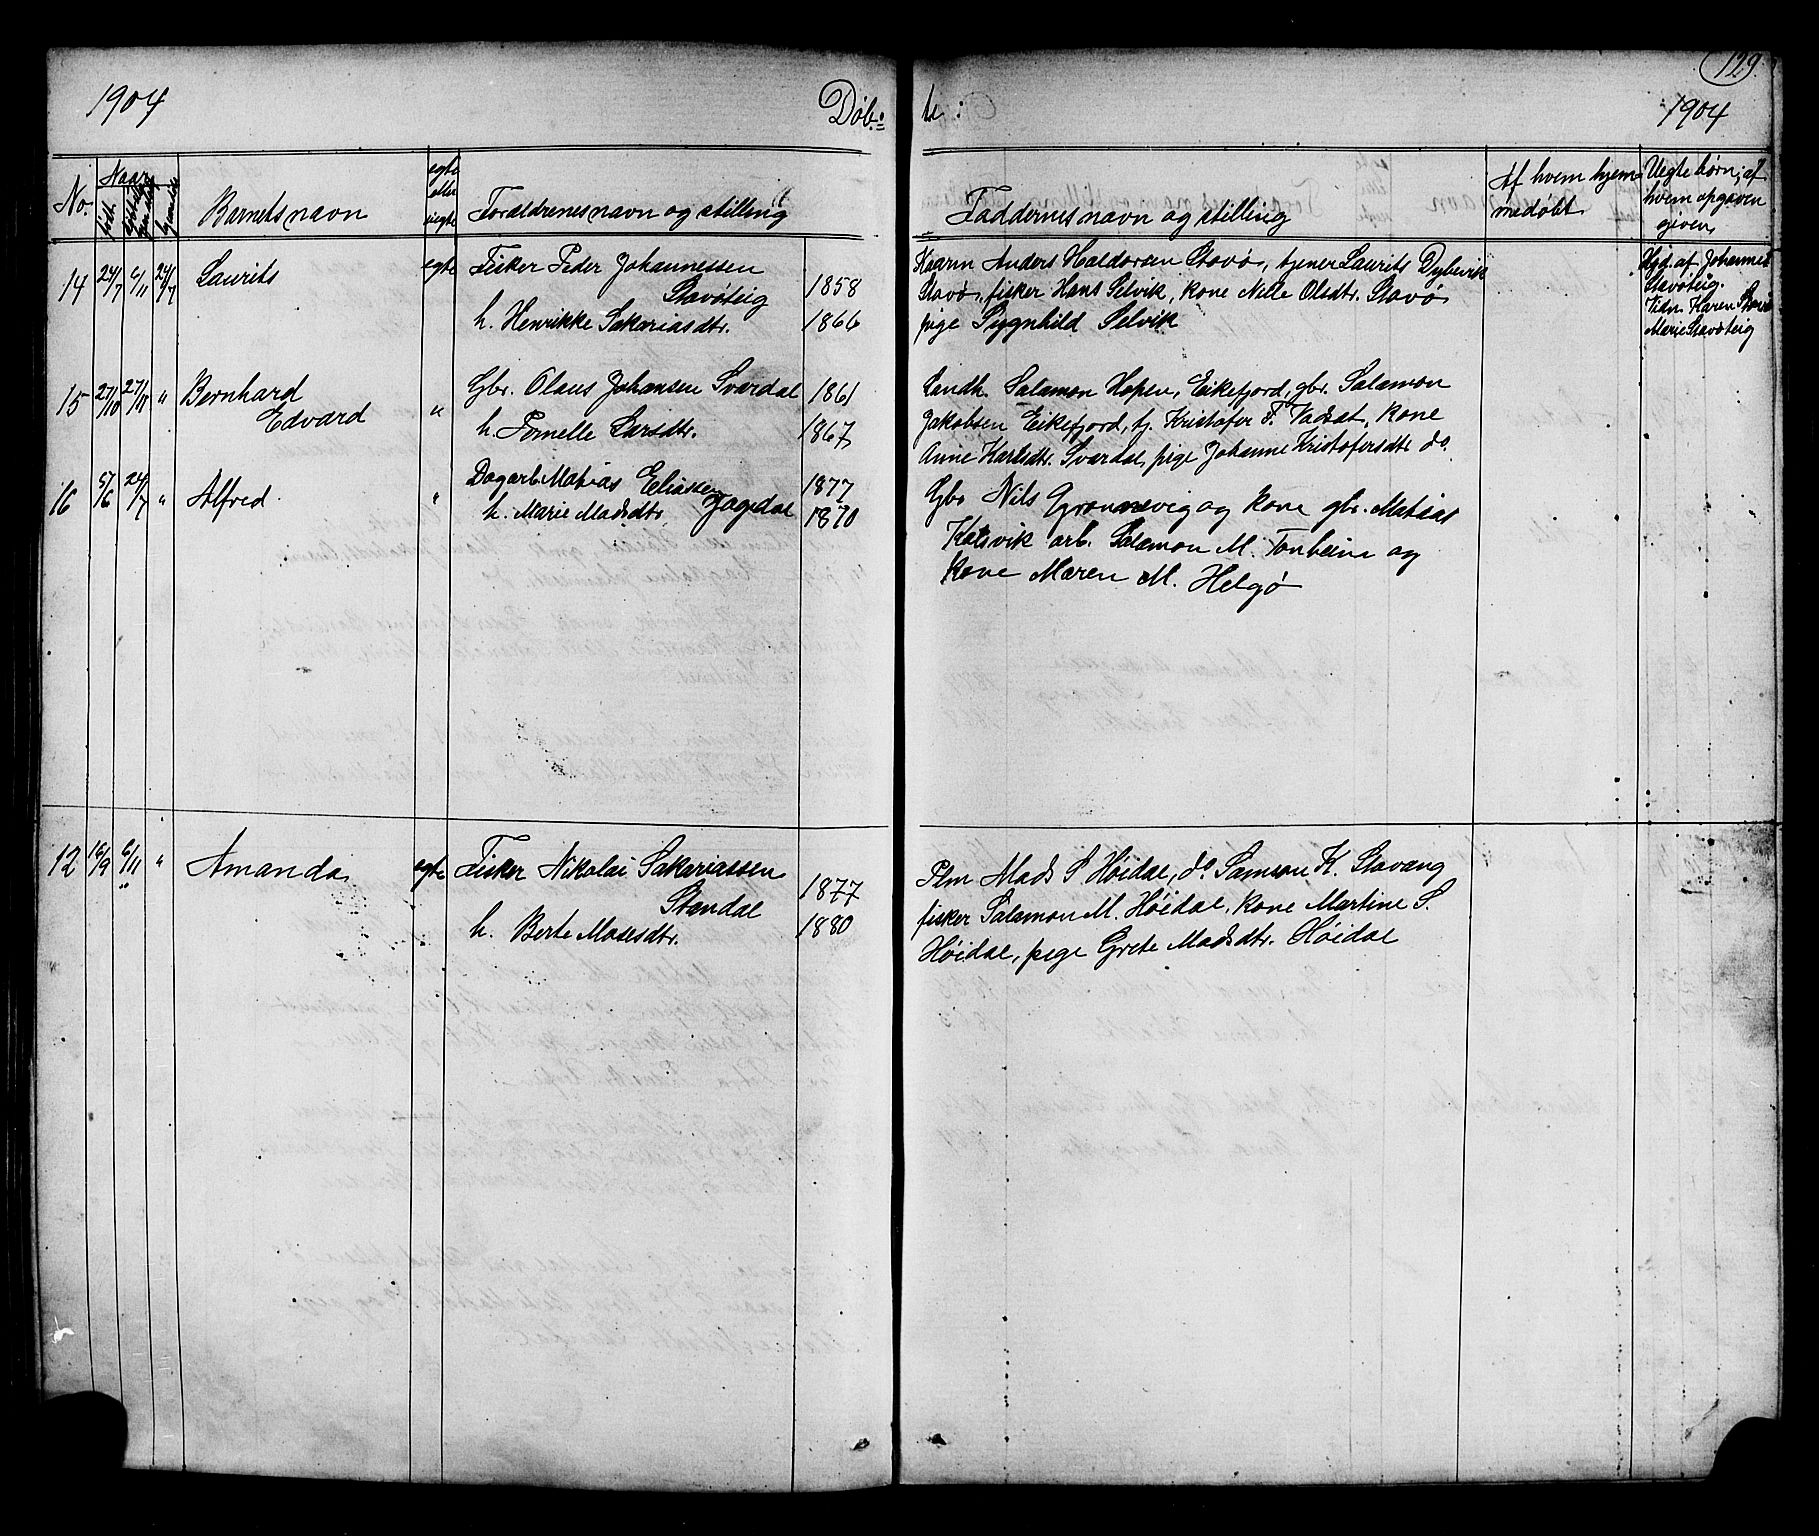 129
1904
Døb-
te:
1904
No.
Naar
født
hjemdøbt
Barnets navn
egte eller uegte
Forældrenes navn og stilling
Faddernes navn og stilling
Af hvem hjem-
medøbt
Uegte børn; af
hvem opgaven
given
14 24/7 6/11 24/7 Laurits egte Fisker Peder Johannessen
Stavøteig 1858
h. Henrikke Sakariasdtr. 1866
Kaarm Anders Haldorsen Stavø, tjener Laurits Dybevik
Stavø, fisker Hans Selvik, kone Nille Olsdtr. Stavø
pige Sygnhild Selvik
Hjd. af Johannes
Stavøteig.
Vidn. Karen Stavø
Marie Stavøteig
15 27/10 27/11 " Bernhard
Edvard " Gbr. Olaus Johansen Svardal 1861
h. Pernelle Larsdtr. 1867
Landh. Salamon Hopen, Eikefjord, gbr. Salamon
Jakobsen Eikefjord, tj. Kristofer T. Vadsat, kone
Anne Karlsdtr. Svardal, pige Johanne Kristofersdtr do.
16 5/6 24/7 " Alfred " Dagarb. Matias Eliassen 1877
h. Marie Madsdtr. Jagedal 1870
Gbr Nils Grønnevig og kone gbr. Matias
Kalsvik arb. Salamon M. Tonheim og
kone Maren M. Helgø
12 16/9 6/11 " Amanda egte Fisker Nikolai Sakariassen
Standal 1877
h. Berte Mosesdtr. 1880
Plm Mads S Høidal, do Samson K. Stavang
fisker Salamon M. Høidal, kone Martine S.
Høidal, pige Grete Madsdtr. Høidal